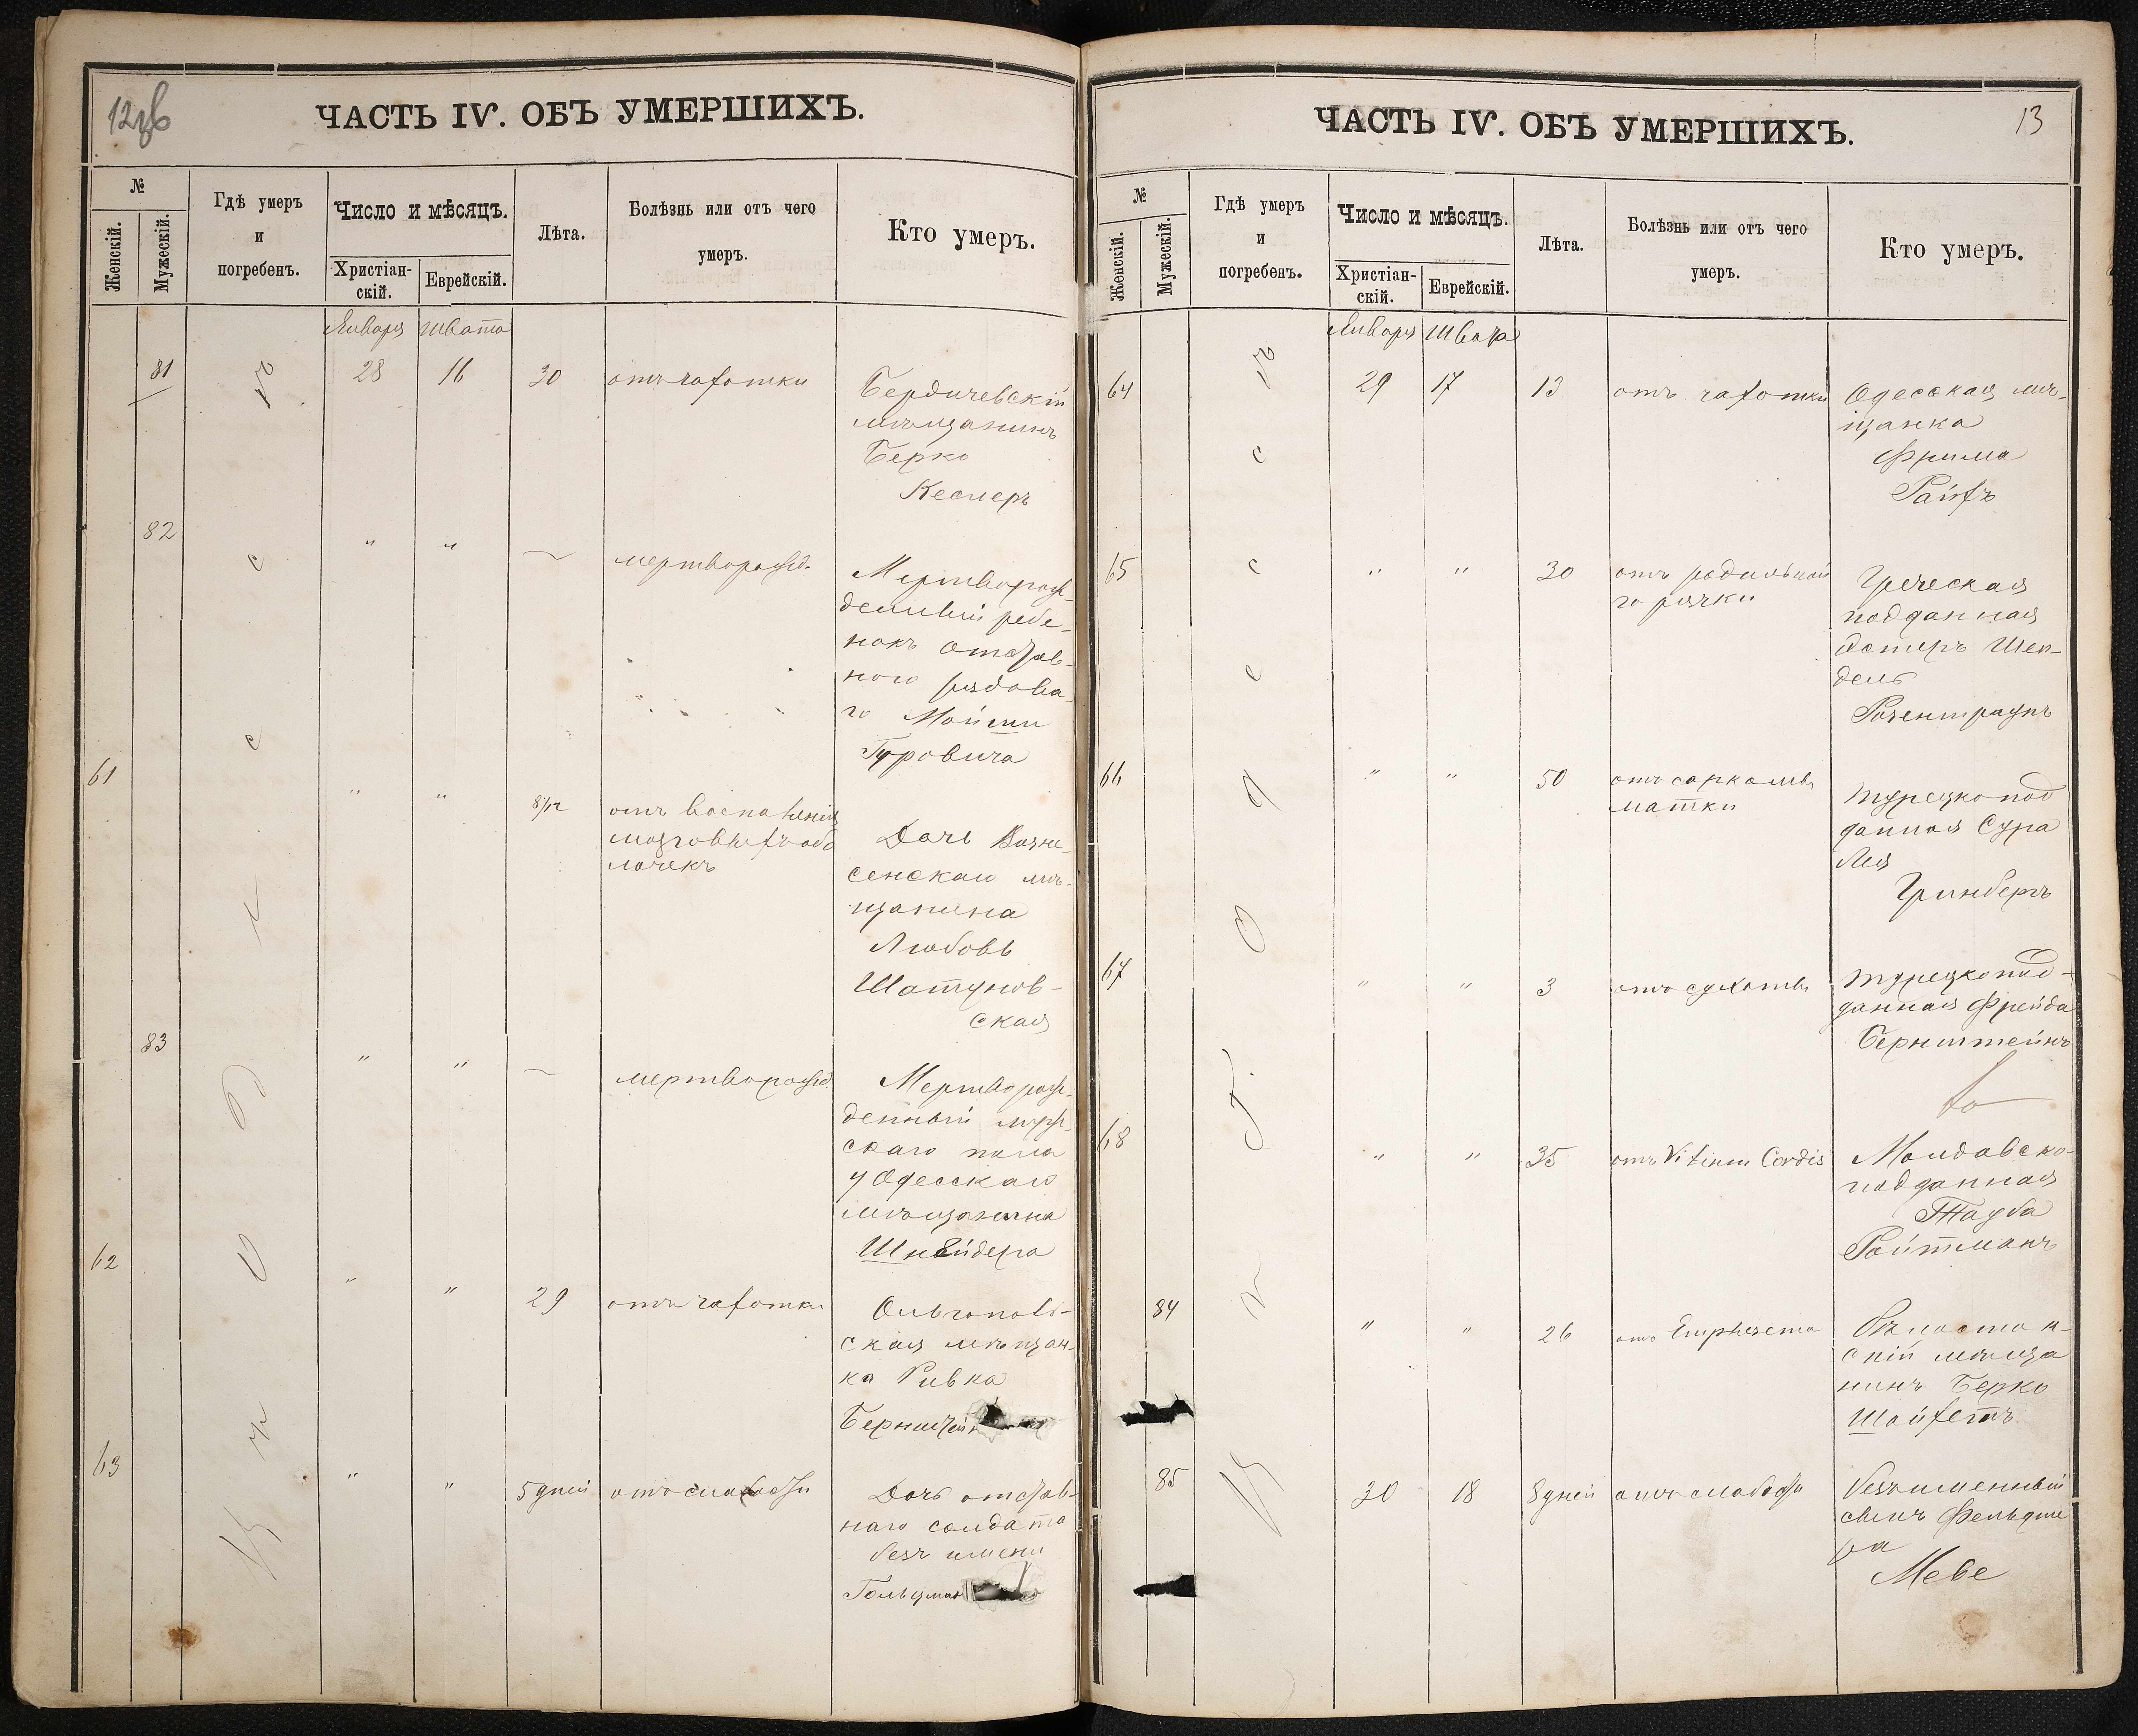 12
ЧАСТЬ IV. ОБЪ УМЕРШИХЪ.
№
Женскій.
Мужескій.
Гдѣ умеръ
и
погребенъ.
Число и мѣсяцъ.
Христіан-
скій.
Еврейскій.
Лѣта.
Болѣзнь или отъ чего
умеръ.
Кто умеръ.
Января Швата
81 28 16 30 отъ чахотки
Бердичевскій
мѣщанинъ
Берко
Кеслеръ
82 " " — мертворожд.
Мертворож-
денный ребе-
нокъ отстав-
ного рядова-
го Мойши
Гуровича
61 " " 8/12 отъ воспаленія
мозговыхъ обо
лочекъ
Дочь Возне-
сенскаго мѣ-
щанина
Любовь
Шатунов-
ская
83 " " — мертворожд.
Мертворож-
денный муж-
скаго пола
у Одесскаго
мѣщанина
Шнейдера
62 " " 29 отъ чахотки
Ольгополь-
ская мѣщан-
ка Ривка
63 " " 5 дней отъ слабости
Дочь отстав-
наго солдата
безъ имени
въ г Одессѣ
ЧАСТЬ IV. ОБЪ УМЕРШИХЪ.
13
№
Женскій.
Мужескій.
Гдѣ умеръ
и
погребенъ.
Число и мѣсяцъ.
Христіан-
скій.
Еврейскій.
Лѣта.
Болѣзнь или отъ чего
умеръ.
Кто умеръ.
Января Швата
64 29 17 13 отъ чахотки
Одесская мѣ-
щанка
Фрима
Райхъ
65 " " 30 отъ родильной
горячки
Греческая
подданная
Эстеръ Шен-
дель
Розентраупъ
66 " " 50 отъ саркомы
матки
Турецкопод
данная Сура
Лея
Гринбергъ
67 " " 3 отъ сухоты
Турецкопод-
данная Фрейда
Бернштейнъ
68 " " 35 отъ Vitium Cordis
Молдавско-
подданная
Тауба
Ройтманъ
84 " " 26 отъ Emphysema
скій мѣща
нинъ Берко
Шайхетъ
85 30 18 8 дней отъ слабости
безъименный
сынъ Фельдше
ра
Мебе
въ г Одессѣ